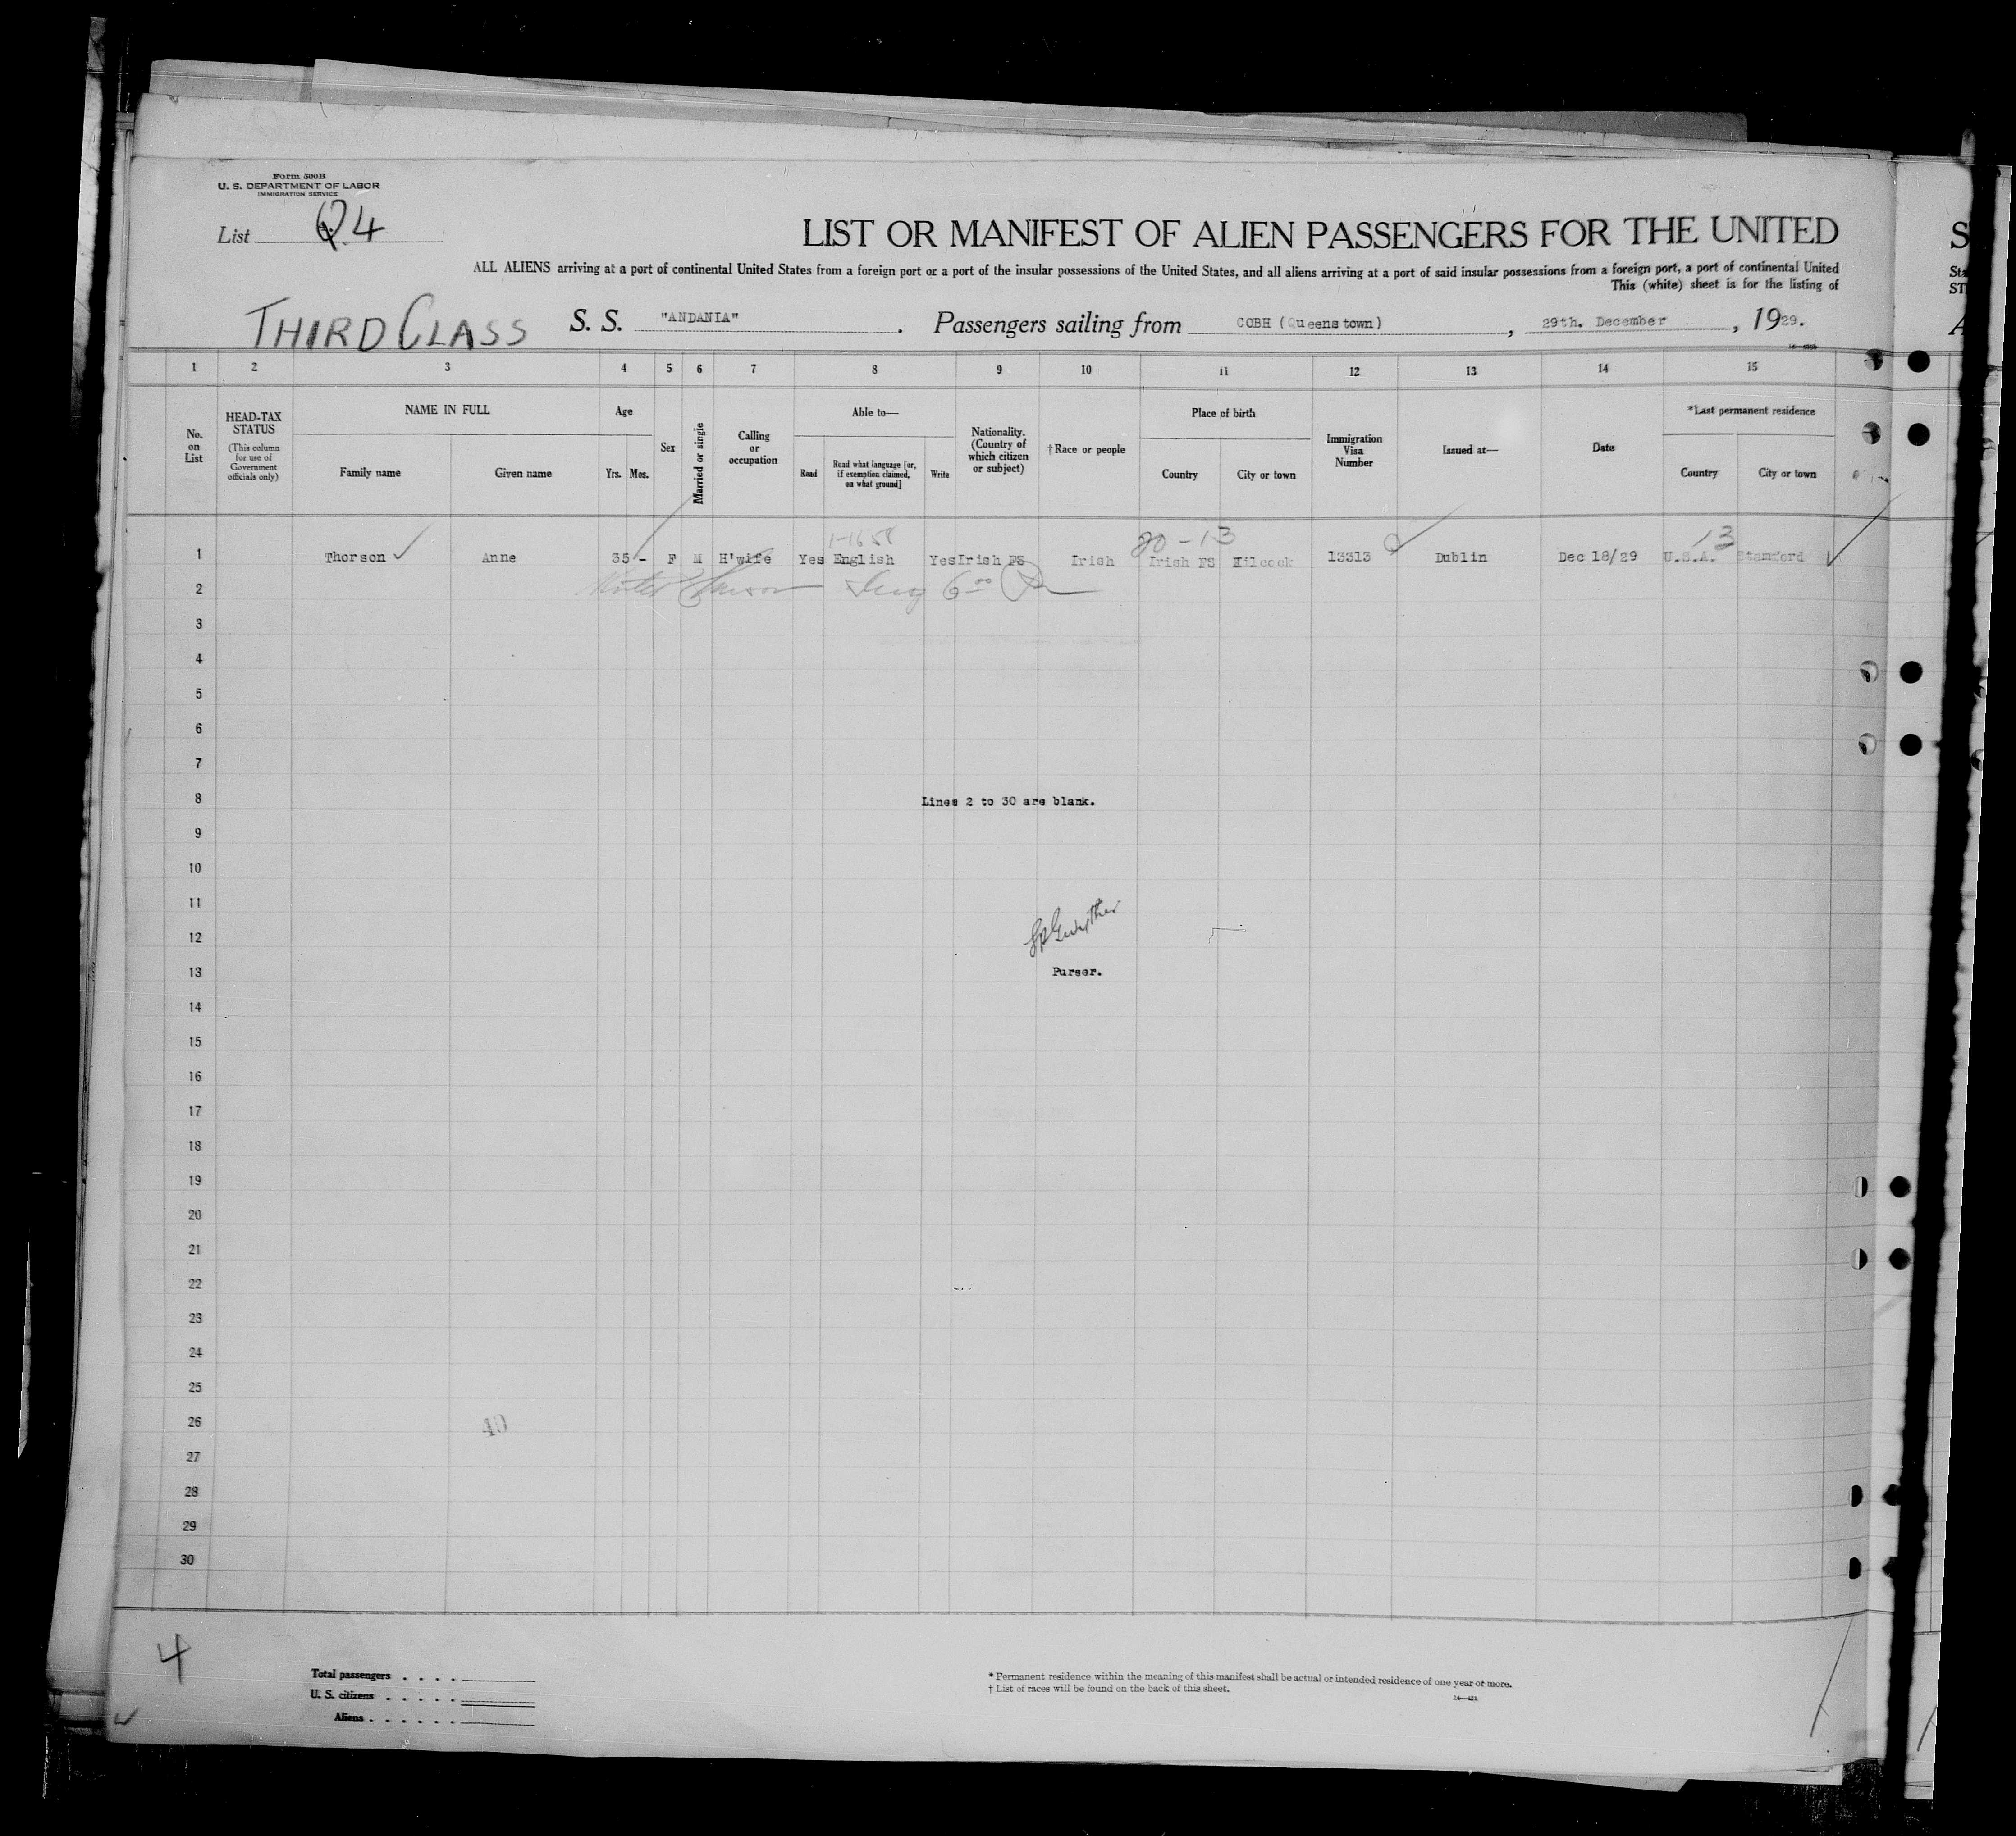 Form 500B
U. S. DEPARTMENT OF LABOR
IMMIGRATION SERVICE
List 4
LIST OR MANIFEST OF ALIEN PASSENGERS FOR THE UNITED
ALL ALIENS arriving at a port of continental United States from a foreign port or a port of the insular possessions of the United States, and all aliens arriving at a port of said insular possessions from a foreign port, a port of continental United
This (white) sheet is for the listing of
THIRD CLASS S. S. "ANDANIA" . Passengers sailing from COBH (Queenstown) , 29th. December , 1929.
1 2 3 4 5 6 7 8 9 10 11 12 13 14 15
No. on List
HEAD-TAX STATUS
(This column for use of Government officials only)
NAME IN FULL
Family name Given name
Age
Yrs. Mos.
Sex
Married or single
Calling or occupation
Able to—
Read
Read what language [or, if exemption claimed, on what ground]
Write
Nationality. (Country of which citizen or subject)
†Race or people
Place of birth
Country City or town
Immigration Visa Number
Issued at—
Date
*Last permanent residence
Country City or town
1-1658 20-13 13
1 Thorson Anne 35 - F M H'wife Yes English Yes Irish FS Irish Irish FS Kilcock 13313 Dublin Dec 18/29 U.S.A. Stamford
2
3
4
5
6
7
8 Lines 2 to 30 are blank.
9
10
11
12
13 Purser.
14
15
16
17
18
19
20
21
22
23
24
25
26 40
27
28
29
30
4
Total passengers . . . .
U. S. citizens . . . . .
Aliens . . . . . .
* Permanent residence within the meaning of this manifest shall be actual or intended residence of one year or more.
† List of races will be found on the back of this sheet.